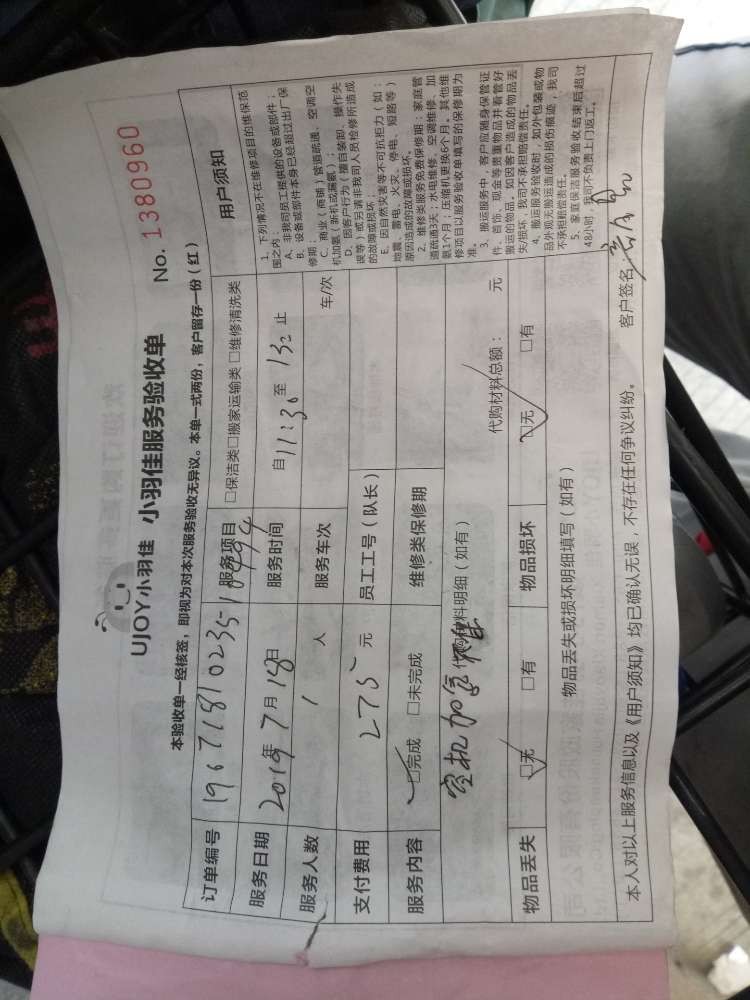 UJOY小羽佳 小羽佳服务验收单
No. 1380960
本验收单一经核签，即视为对本次服务验收无异议。本单一式两份，客户留存一份（红）
订单编号 196718102351
服务项目 □保洁类□搬家运输类□维修清洗类
服务日期 2019年7月18日
服务时间 自11:30至 止
服务人数 1 人
服务车次 车/次
支付费用 275 元
员工工号（队长）
服务内容 □完成 □未完成
维修类保修期
空机加氟
代购材料明细（如有）
代购材料总额： 元
物品丢失 □无 □有
物品损坏 □无 □有
物品丢失或损坏明细填写（如有）
本人对以上服务信息以及《用户须知》均已确认无误，不存在任何争议纠纷。 客户签名：
用户须知
1、下列情况不在维修项目的维保范
围之内：
A、非我司员工提供的设备或部件；
B、设备或部件本身已经超过出厂保
修期；
C、商业（商铺）管道疏通、空调空
机加氨（新机或漏氨）；
D、因客户行为（擅自装卸、操作失
误等）或另请非我司人员检修所造成
的故障或损坏；
E、因自然灾害等不可抗拒力（如：
地震、雷电、火灾、停电、短路等）
原因造成的故障或损坏。
2、维修类服务免费保修期：家庭管
道疏通3天；水电维修、空调维修、加
氨1个月，压缩机更换6个月。其他维
修项目以服务验收单填写的保修期为
准。
3、搬运服务中，客户应随身保管证
件、首饰、现金等贵重物品并看管好
搬运的物品。如因客户造成的物品丢
失/损坏，我司不承担赔偿责任。
4、搬运服务验收时，如外包装或物
品外观无搬运造成的损伤痕迹，我司
不承担赔偿责任。
5、家庭保洁服务验收结束后超过
48小时，我司不负责上门返工。